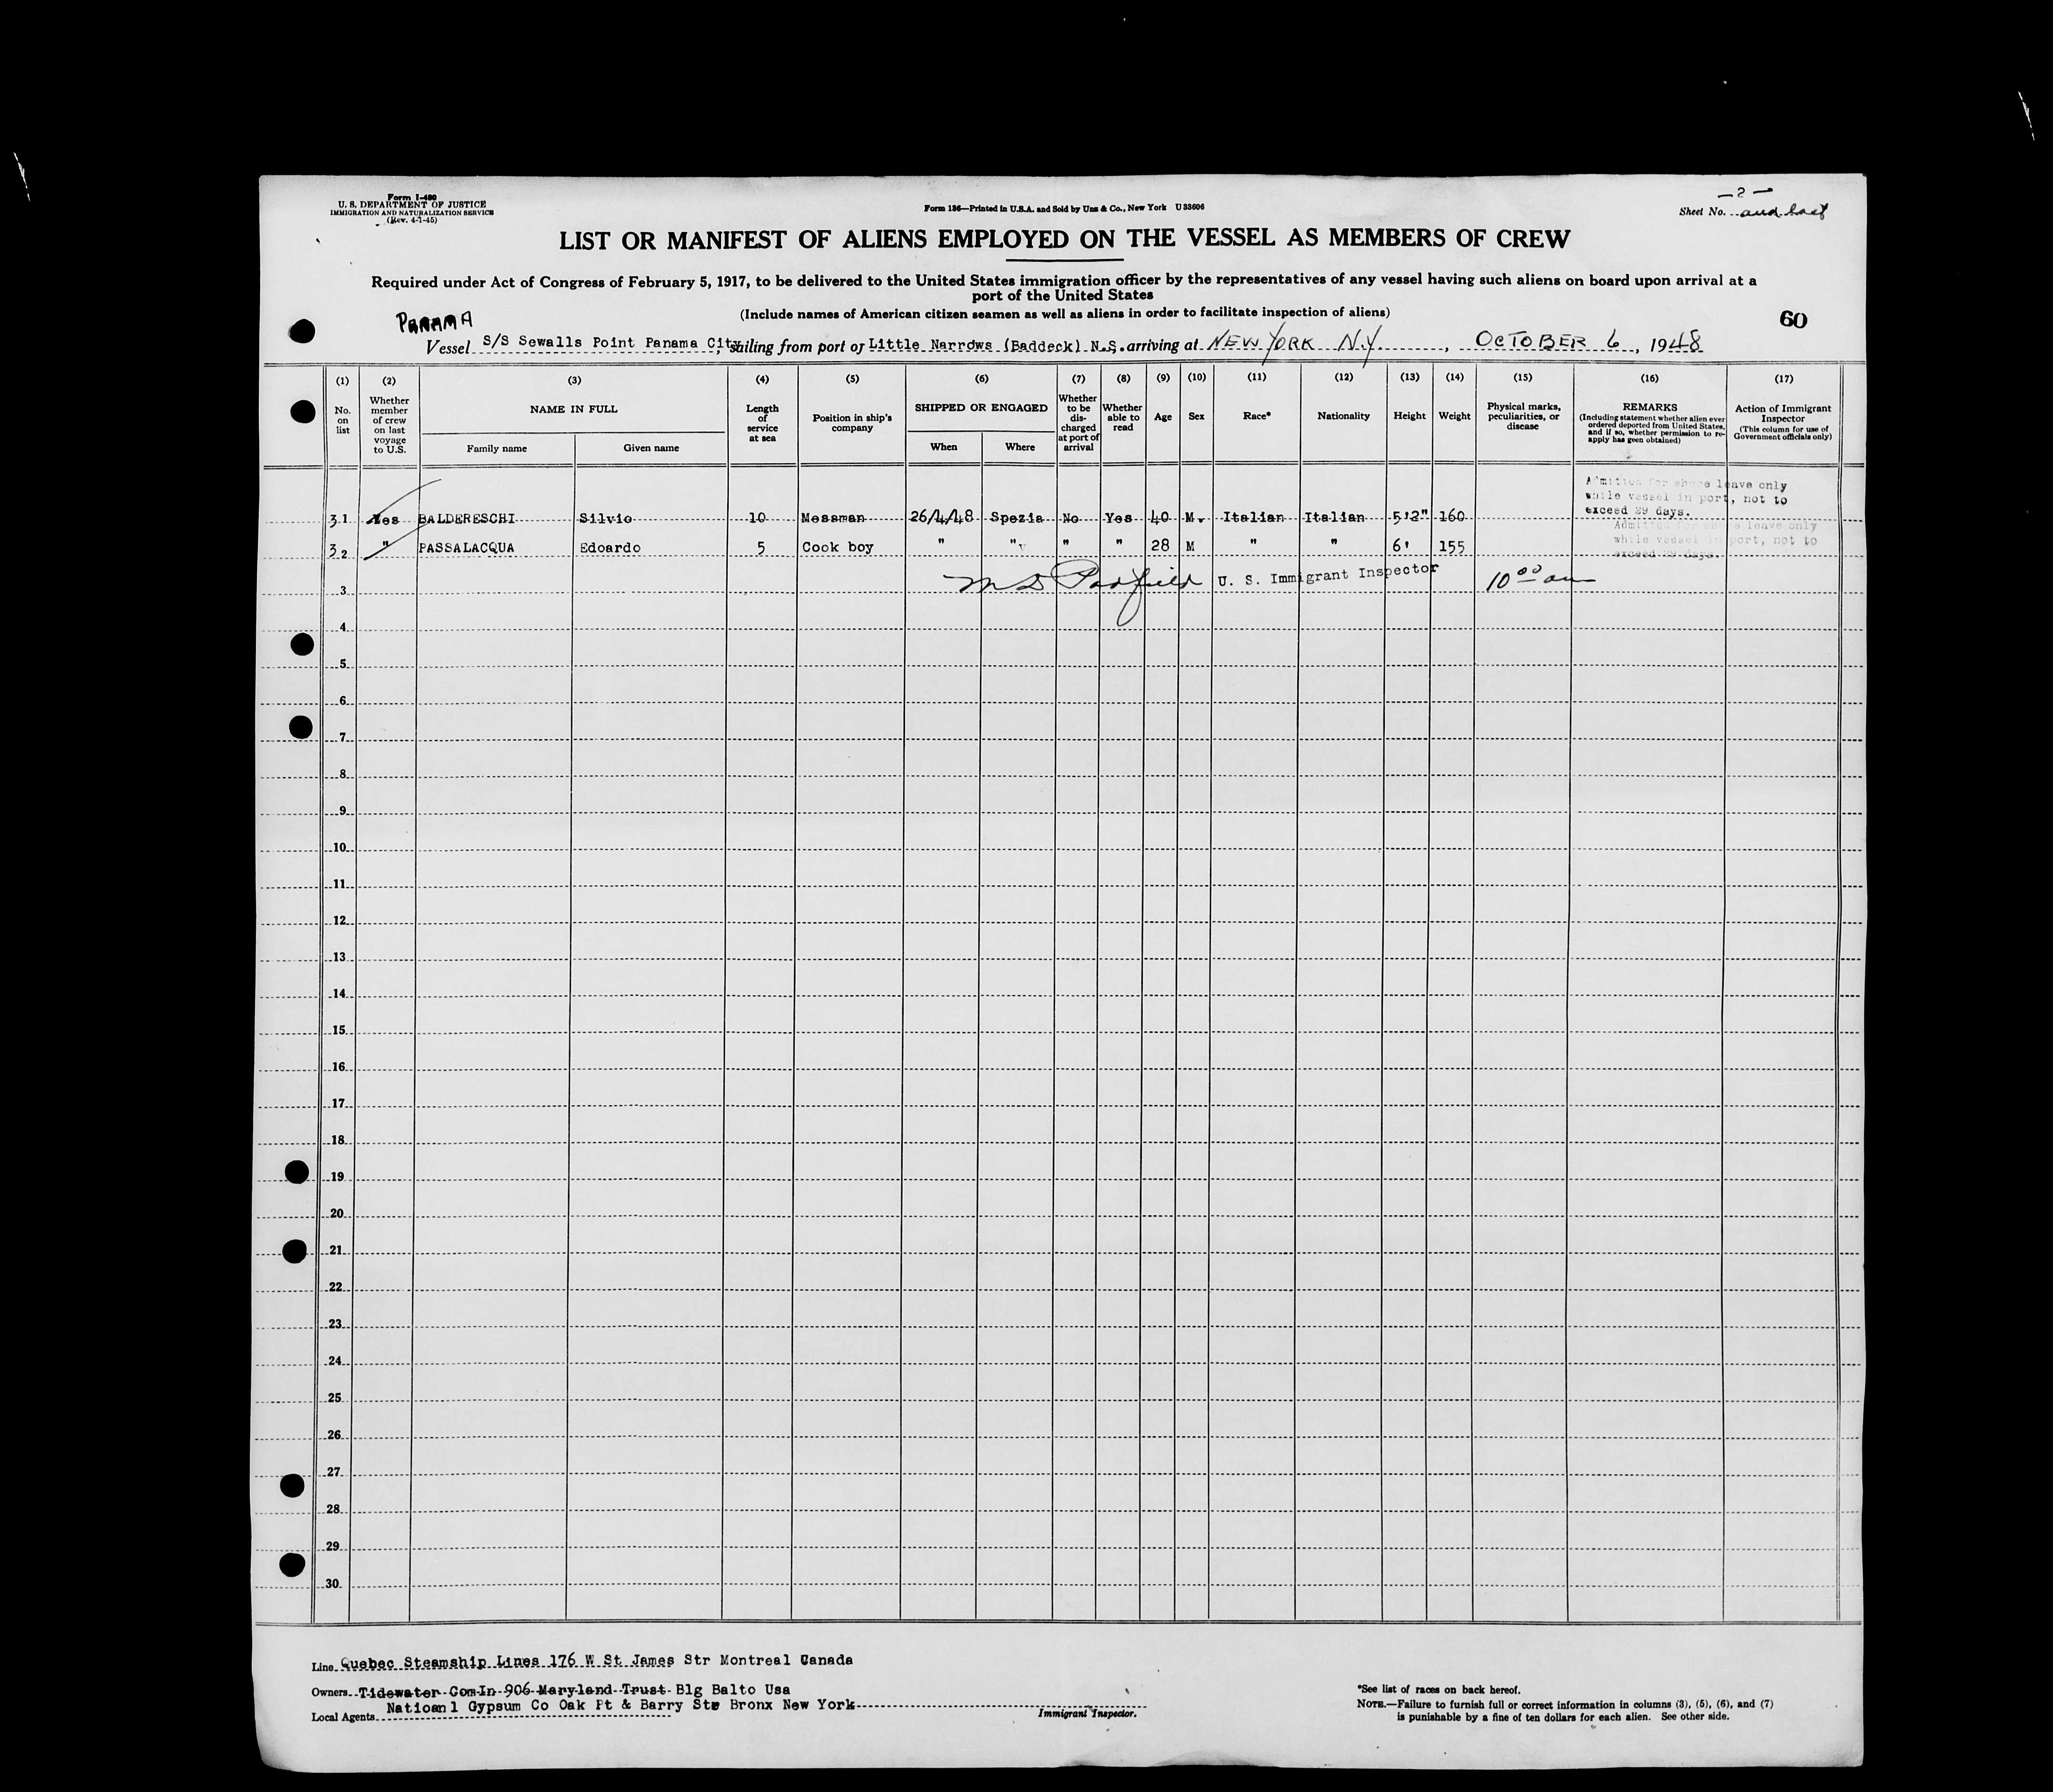 Form I-480
U. S. DEPARTMENT OF JUSTICE
IMMIGRATION AND NATURALIZATION SERVICE
(Rev. 4-1-45)
Form 136—Printed in U.S.A. and Sold by Unz & Co., New York U 33606
— 2 —
Sheet No. and last
LIST OR MANIFEST OF ALIENS EMPLOYED ON THE VESSEL AS MEMBERS OF CREW
Required under Act of Congress of February 5, 1917, to be delivered to the United States immigration officer by the representatives of any vessel having such aliens on board upon arrival at a
port of the United States
(Include names of American citizen seamen as well as aliens in order to facilitate inspection of aliens)
60
PANAMA
Vessel S/S Sewalls Point Panama City, sailing from port of Little Narrows (Baddeck) N.S. arriving at NEW YORK N.Y , OCTOBER 6, 1948
(1) (2) (3) (4) (5) (6) (7) (8) (9) (10) (11) (12) (13) (14) (15) (16) (17)
No. on list
Whether member of crew on last voyage to U.S.
NAME IN FULL
Family name
Given name
Length of service at sea
Position in ship's company
SHIPPED OR ENGAGED
When
Where
Whether to be discharged at port of arrival
Whether able to read
Age
Sex
Race*
Nationality
Height
Weight
Physical marks, peculiarities, or disease
REMARKS
(Including statement whether alien ever ordered deported from United States, and if so, whether permission to reapply has been obtained)
Action of Immigrant Inspector
(This column for use of Government officials only)
31 Yes BALDERESCHI Silvio 10 Messman 26/4/48 Spezia No Yes 40 M. Italian Italian 5'2" 160
Admitted for shore leave only
while vessel in port, not to
exceed 29 days.
32 " PASSALACQUA Edoardo 5 Cook boy " " " " 28 M " " 6' 155
Admitted for shore leave only
while vessel in port, not to
exceed 29 days.
3 M D Padfield U. S. Immigrant Inspector 10 00 am
4
5
6
7
8
9
10
11
12
13
14
15
16
17
18
19
20
21
22
23
24
25
26
27
28
29
30
Line Quebec Steamship Lines 176 W St James Str Montreal Canada
Owners Tidewater Com In 906 Maryland Trust Blg Balto Usa
Local Agents Natioanl Gypsum Co Oak Pt & Barry Str Bronx New York
Immigrant Inspector.
*See list of races on back hereof.
NOTE.—Failure to furnish full or correct information in columns (3), (5), (6), and (7)
is punishable by a fine of ten dollars for each alien. See other side.